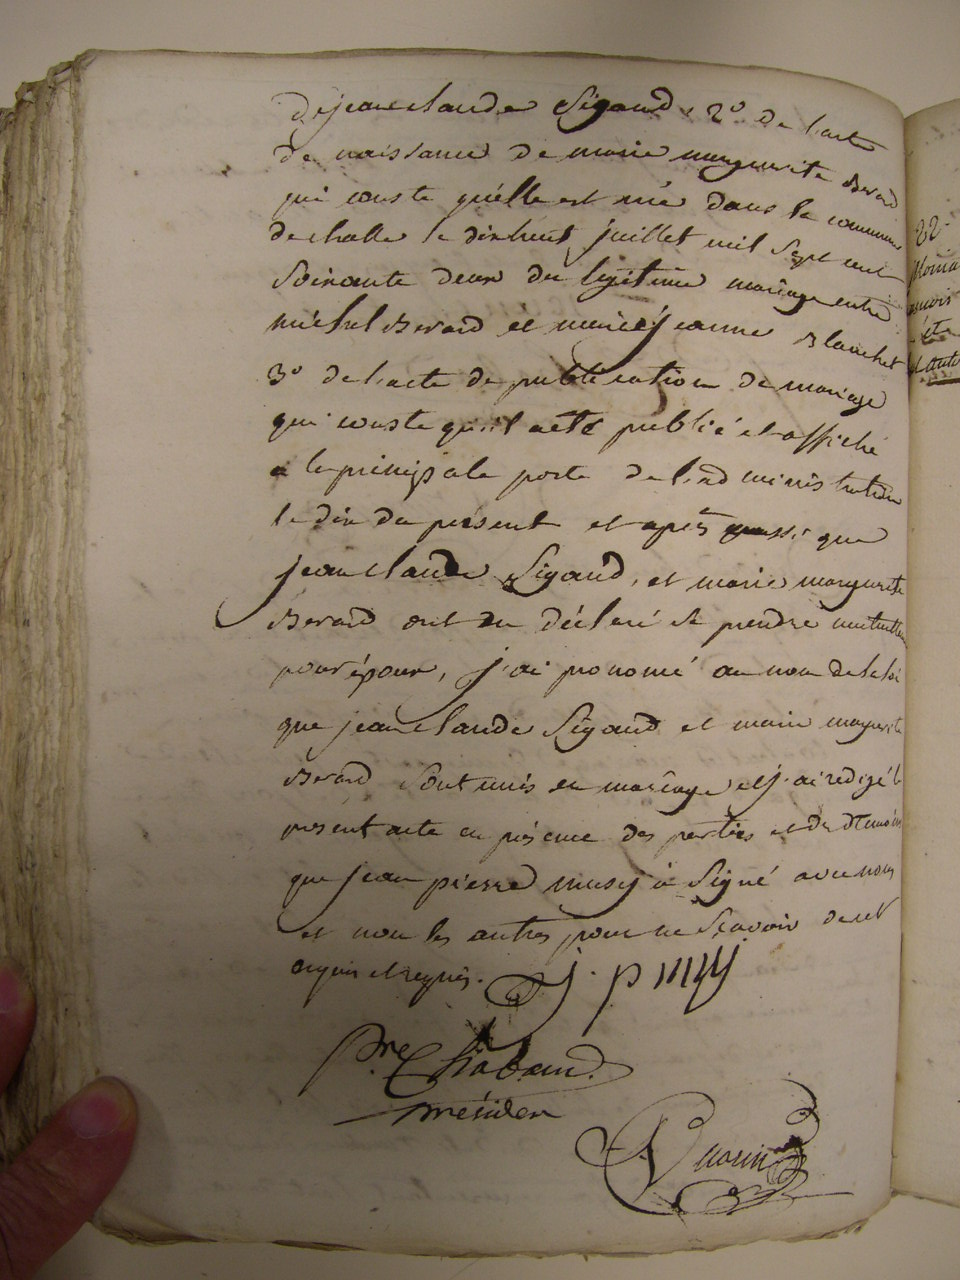 De jean claude Sigaud, 2° de l'act
de naissance de marie marguerite Berard
qui conste qu'elle est née dans la commune
de challe le dixhuit juillet mil sept cent
soixante deux du légitime mariage entre
michel Berard et marie jeanne Blanchet
3° de l'acte de publication de mariage
qui conste qu'il a été publié et affiché
a la principale porte de l'administration
le dix du present et après aussi que
jean claude Sigaud, et marie marguerite
Berard ont eu déclaré se prendre mutuellem
pour époux, j'ai prononcé au nom de la loi
que jean claude Sigaud et marie marguerite
Berard sont unis en mariage et j'ai redigé le
present acte en présence des parties et des témoins
que jean pierre musy a signé avec nous
et non les autres pour ne sçavoir de ce
enquis et requis. j. p musy
Pre Chabaud.
président
22